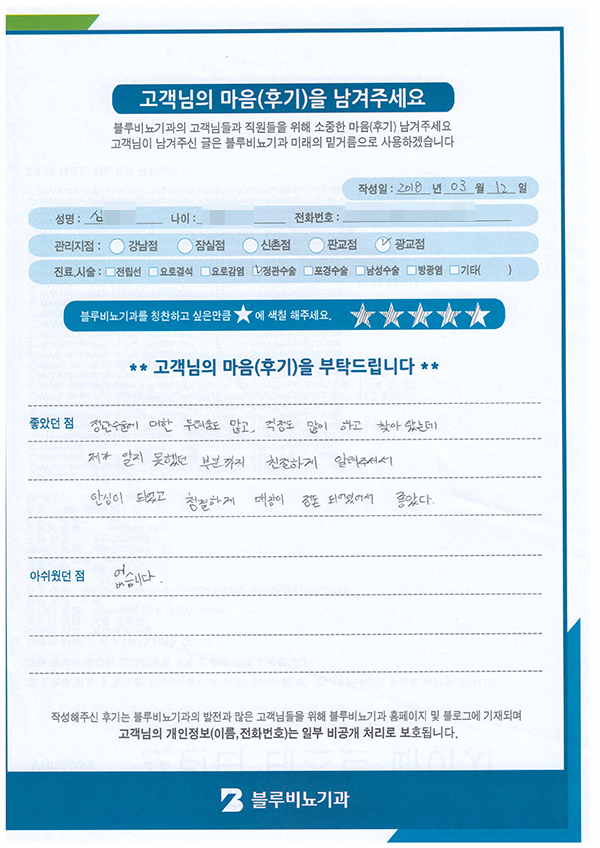 고객님의 마음(후기)을 남겨주세요
블루비뇨기과의 고객님들과 직원들을 위해 소중한 마음(후기) 남겨주세요
고객님이 남겨주신 글은 블루비뇨기과 미래의 밑거름으로 사용하겠습니다
작성일 : 2018 년 03 월 12 일
성명 : 심 나이 : 전화번호 :
관리지점 : 강남점 잠실점 신촌점 판교점 광교점
진료,시술 : 전립선 요로결석 요로감염 정관수술 포경수술 남성수술 방광염 기타( )
블루비뇨기과를 칭찬하고 싶은만큼 ★에 색칠 해주세요. ★★★★★
** 고객님의 마음(후기)을 부탁드립니다 **
좋았던 점 정관수술에 대한 두려움도 많고, 걱정도 많이 하고 찾아 왔는데
제가 알지 못했던 부분까지 친절하게 알려주셔서
안심이 되었고 친절하게 대광이 되어있어서 좋았다.
아쉬웠던 점 없습니다.
작성해주신 후기는 블루비뇨기과의 발전과 많은 고객님들을 위해 블루비뇨기과 홈페이지 및 블로그에 기재되며
고객님의 개인정보(이름,전화번호)는 일부 비공개 처리로 보호됩니다.
블루비뇨기과